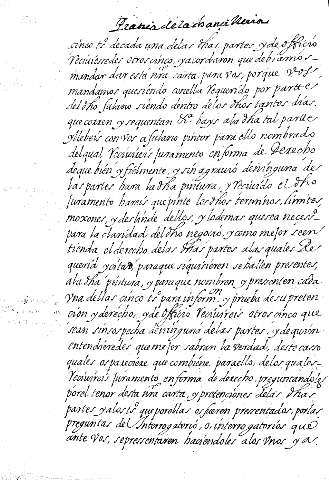 cinco tos de cada una de las dhas partes, y de officio
Reciuiredes otros cinco, y acordaron que debiamos
mandar dar esta nra carta para vos, porque vos
mandamos que siendo con ella Requerido por parte
del dho salario siendo dentro de los dhos tantos dias
que corren y se quentan ca bays a la dha tal parte
y lleueis con vos a fulano pintor para ello nombrado
del qual Reciuireis juramento en forma de derecho
de que bien y fielmente, y sin agrauio de ninguna de
las partes hara la dha pintura, y Reciuido el dho
juramento hareis que pinte los dhos terminos, limites
moxones, y deslinde dellos, y lo demas que sea necesso
para la claridad del dho negocio, y como mejor se en
tienda el derecho de las dhas partes a las quales Re
querid y citad para que si quisieren se hallen presentes,
a la dha pintura, y para que nombren, y presenten cada
una dellas cinco tos para informon y prueba de su preten
cion y derecho, y de officio Reciuireis otros cinco que
sean sin sospecha de ninguna de las partes, y de quien
entendieredes que mejor sabran la verdad, deste caso
quales os pareciere que combiene para ello, de los quales
Reciuireis juramento en forma de derecho, preguntandoles
por el tenor desta nra carta, y pretenciones de las dhas
partes, y a los tos que por ellas os fueren presentados, por las
preguntas del Interrogatorio, o interrogatorios que
ante vos, se presentaren haciendoles a los vnos y a